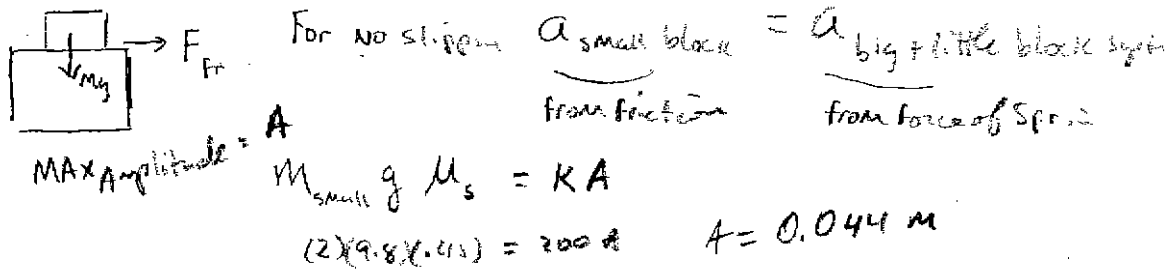 For no slippin a small block = a big + little block syst
F fr
Mg
from friction from force of Spr
MAX Amplitude = A
m small g μs = KA
(2)(9.8)(.45) = 200 A A = 0.044 m